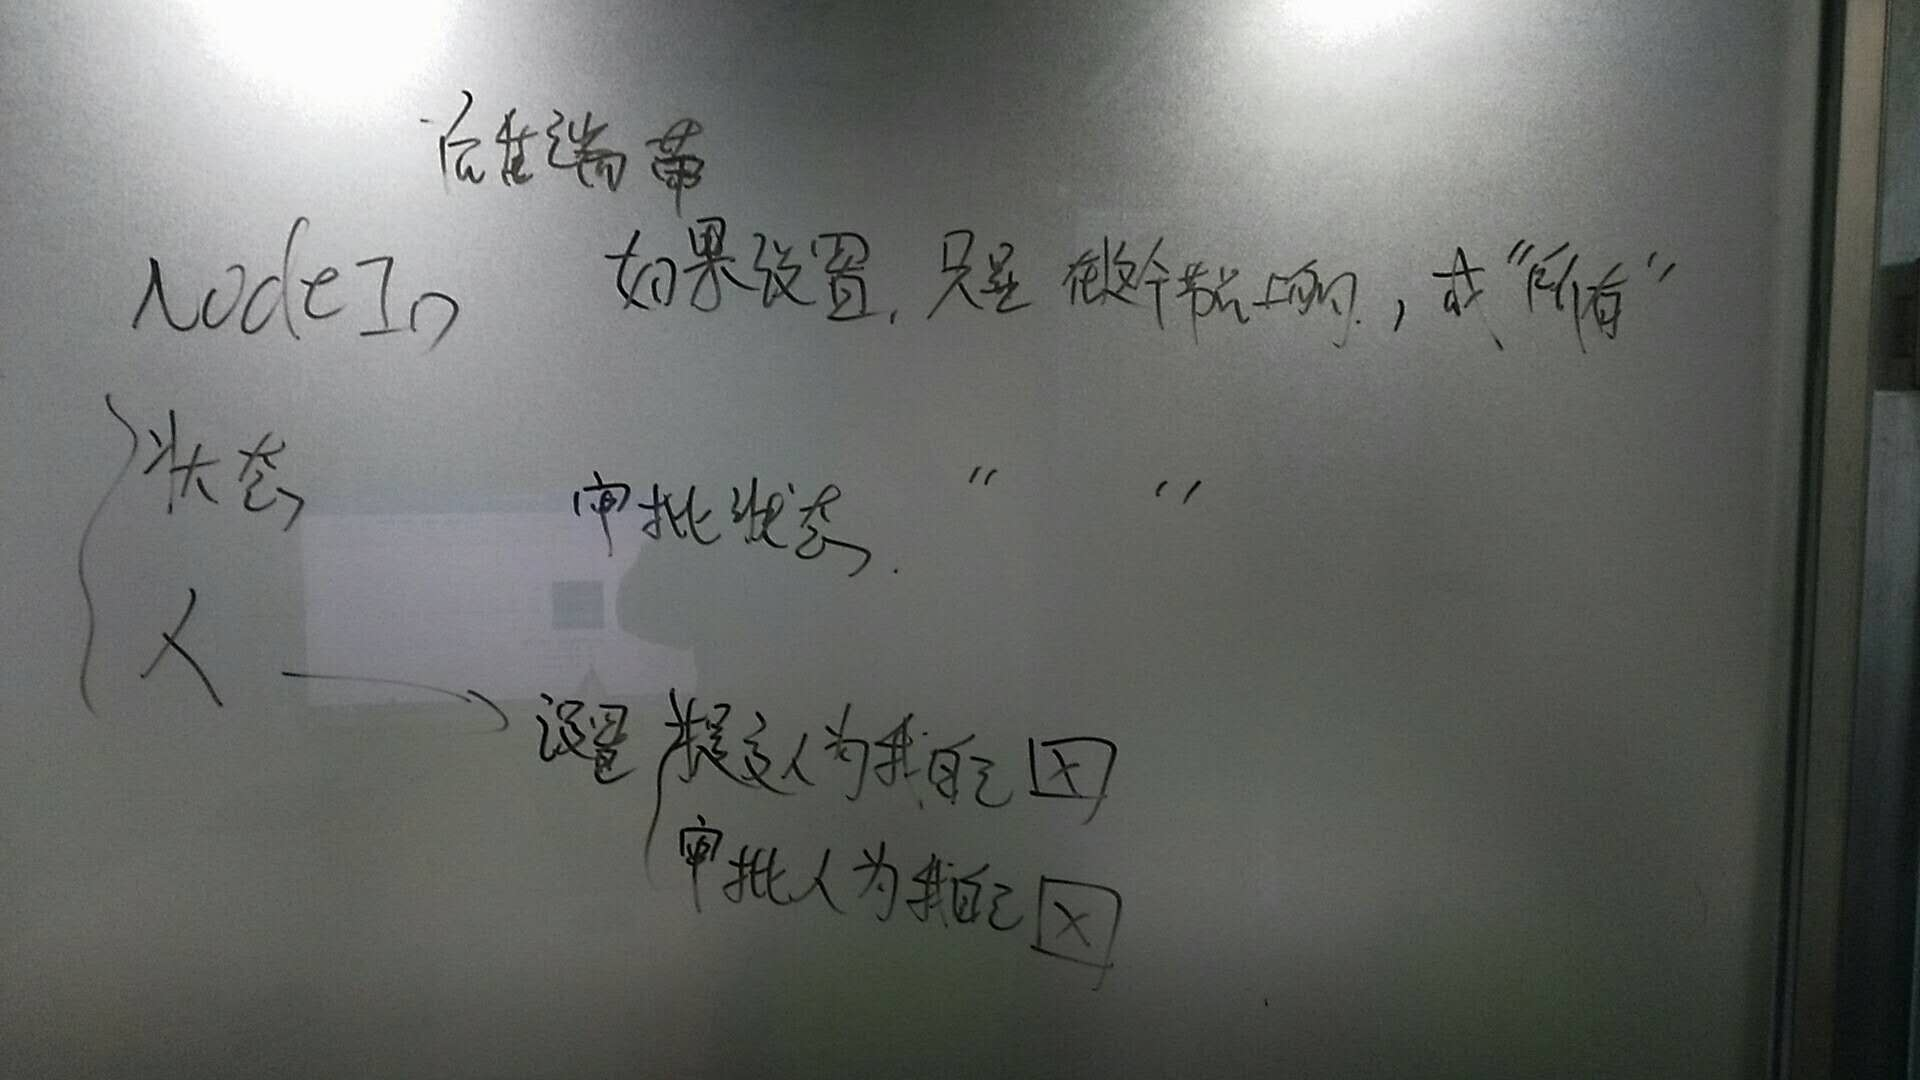 后端带
NodeIn 如果设置,只是在这个节点上的,或“所有”
状态 审批状态. “ ”
人 → 设置 提交人为我自己 ☒
审批人为我自己 ☒